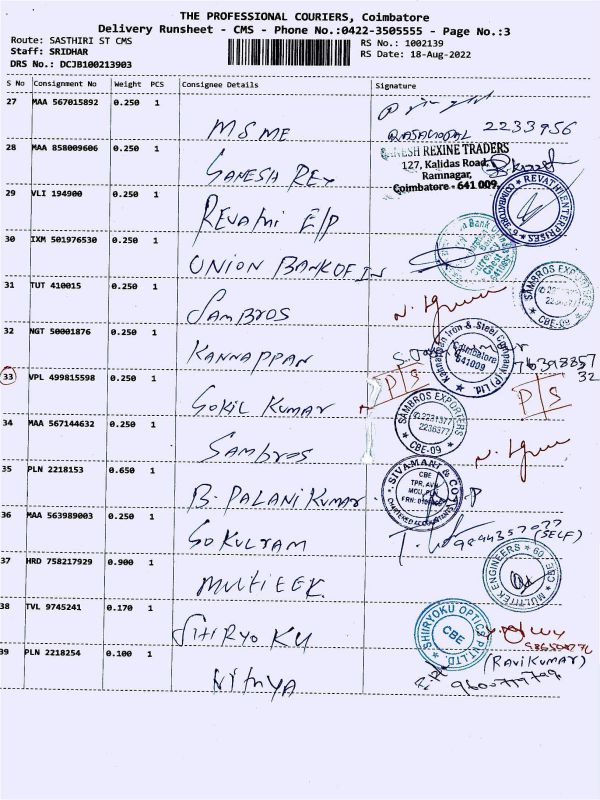 THE PROFESSIONAL COURIERS, Coimbatore
Delivery Runsheet - CMS - Phone No.:0422-3505555 - Page No.:3
Route: SASTHIRI ST CMS
Staff: SRIDHAR
DRS No.: DCJB100213903
RS No.: 1002139
RS Date: 18-Aug-2022
S No Consignment No Weight PCS Consignee Details Signature
27 MAA 567015892 0.250 1
MSME
RAJAGOPAL 2233956
28 MAA 858009606 0.250 1
GANESH REX
GANESH REXINE TRADERS
127, Kalidas Road,
Ramnagar,
Coimbatore - 641 009.
29 VLI 194900 0.250 1
Revathi E/P
REVATHI ENTERPRISES
COIMBATORE
30 IXM 501976530 0.250 1
UNION BANK OF IN
31 TUT 410015 0.250 1
SAMBROS
SAMBROS EXPORTERS
2231377
2236377
CBE-09
32 NGT 50001876 0.250 1
KANNAPPAN
Kannappan Iron & Steel Company (P) Ltd.
Coimbatore
641009
33 VPL 499815598 0.250 1
GOKIL KUMAR
P/S
P/S
7639885732
34 MAA 567144632 0.250 1
Sambros
SAMBROS EXPORTERS
2231377
2236377
CBE-09
35 PLN 2218153 0.650 1
B. PALANI KUMAR
SIVAMANI & CO
CHARTERED ACCOUNTANTS
CBE
36 MAA 563989003 0.250 1
GOKULRAM
(SELF)
37 HRD 758217929 0.900 1
MULTIEEK
MULTITEK ENGINEERS
CBE
38 TVL 9745241 0.170 1
SHIRYO KU
SHIRYOKU OPTICS PVT LTD
CBE
39 PLN 2218254 0.100 1
Nithya
(RAVIKUMAR)